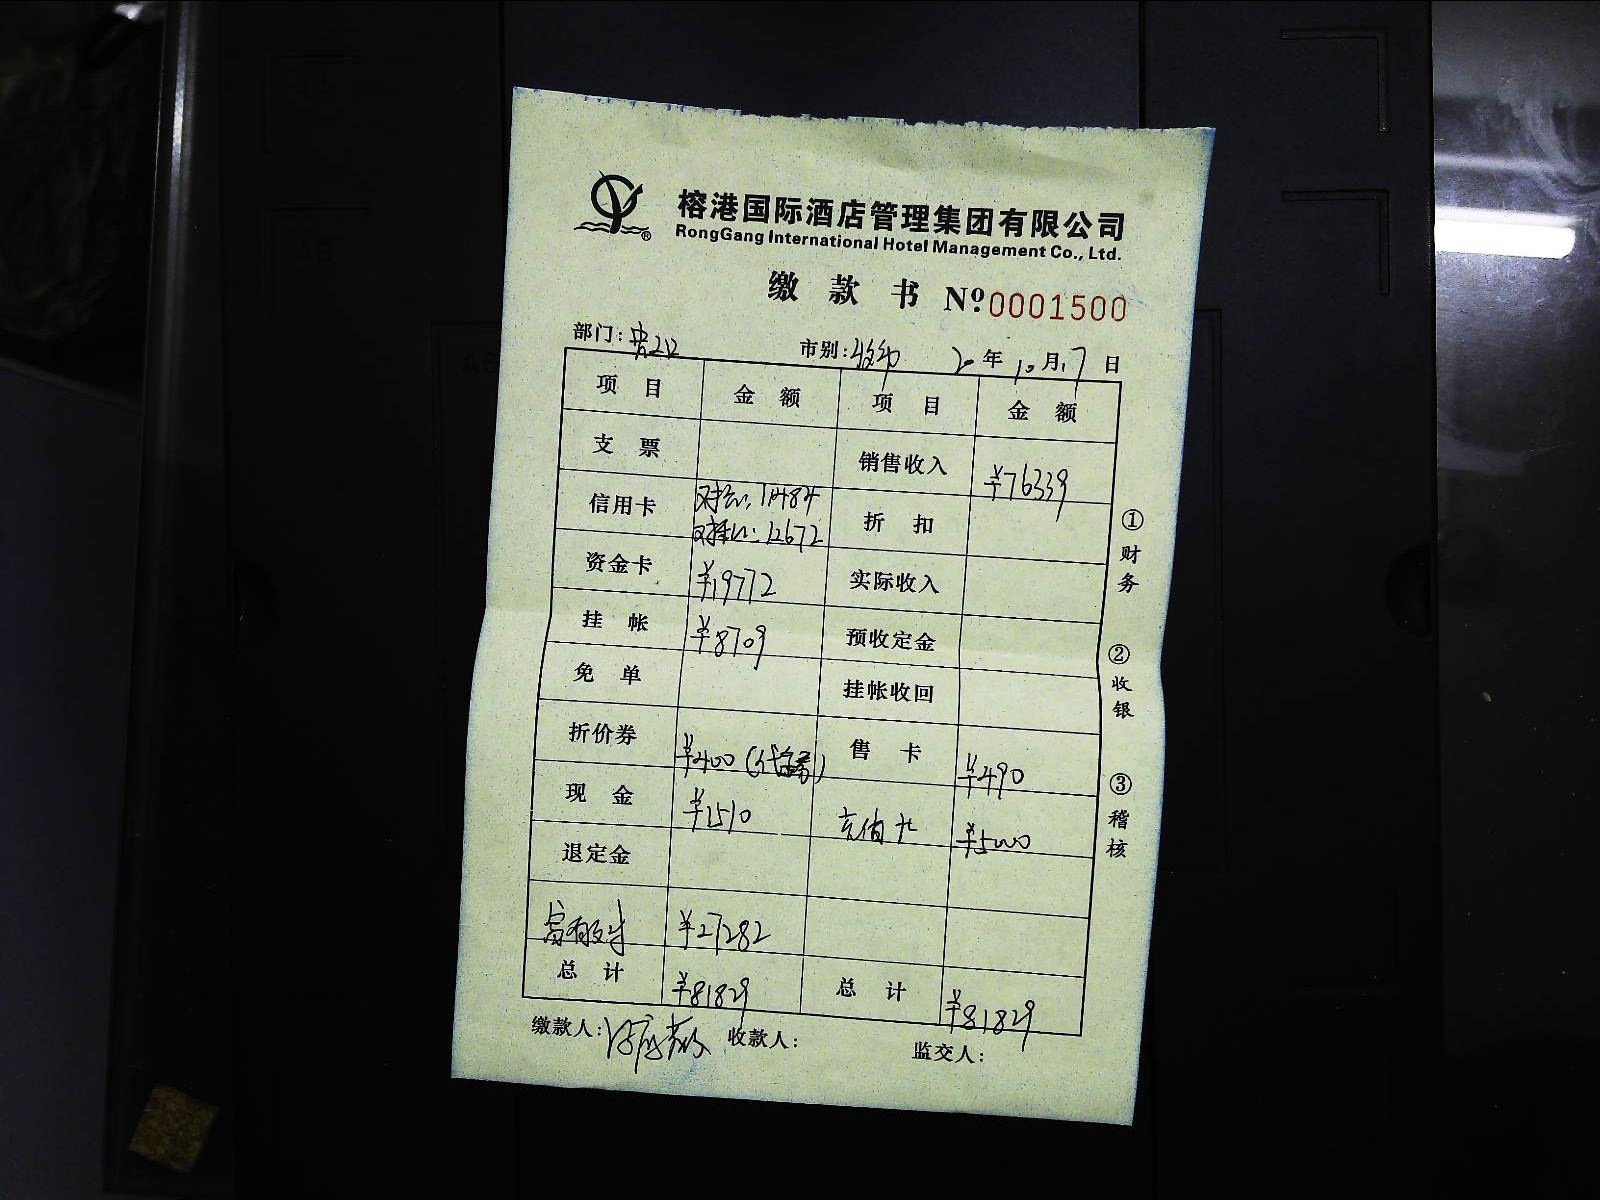 榕港国际酒店管理集团有限公司
RongGang International Hotel Management Co., Ltd.
缴款书 Nº 0001500
部门: 市别: 20年10月17日
项目 金额 项目 金额
支票 销售收入 ¥76339
信用卡 11484 12672 折扣
资金卡 ¥19772 实际收入
挂帐 ¥8709 预收定金
免单 挂帐收回
折价券 ¥400(代金券) 售卡 ¥490
现金 ¥1510 充值卡 ¥5000
退定金
富有支付 ¥27282
总计 ¥81829 总计 ¥81829
缴款人: 收款人: 监交人:
①财务
②收银
③稽核